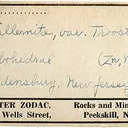 illemite, var. Troost
bohedral (Zn, M
densburg, New Jersey
TER ZODAC, Rocks and Min
Wells Street, Peekskill, N